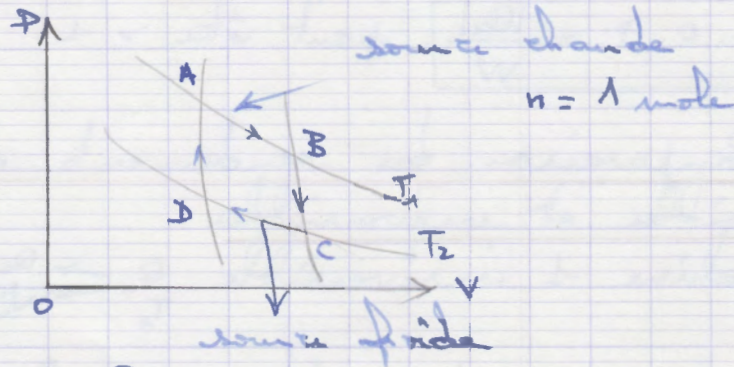 P
source chaude
A
n = 1 mole
B
T1
D
C
T2
O
V
source froide